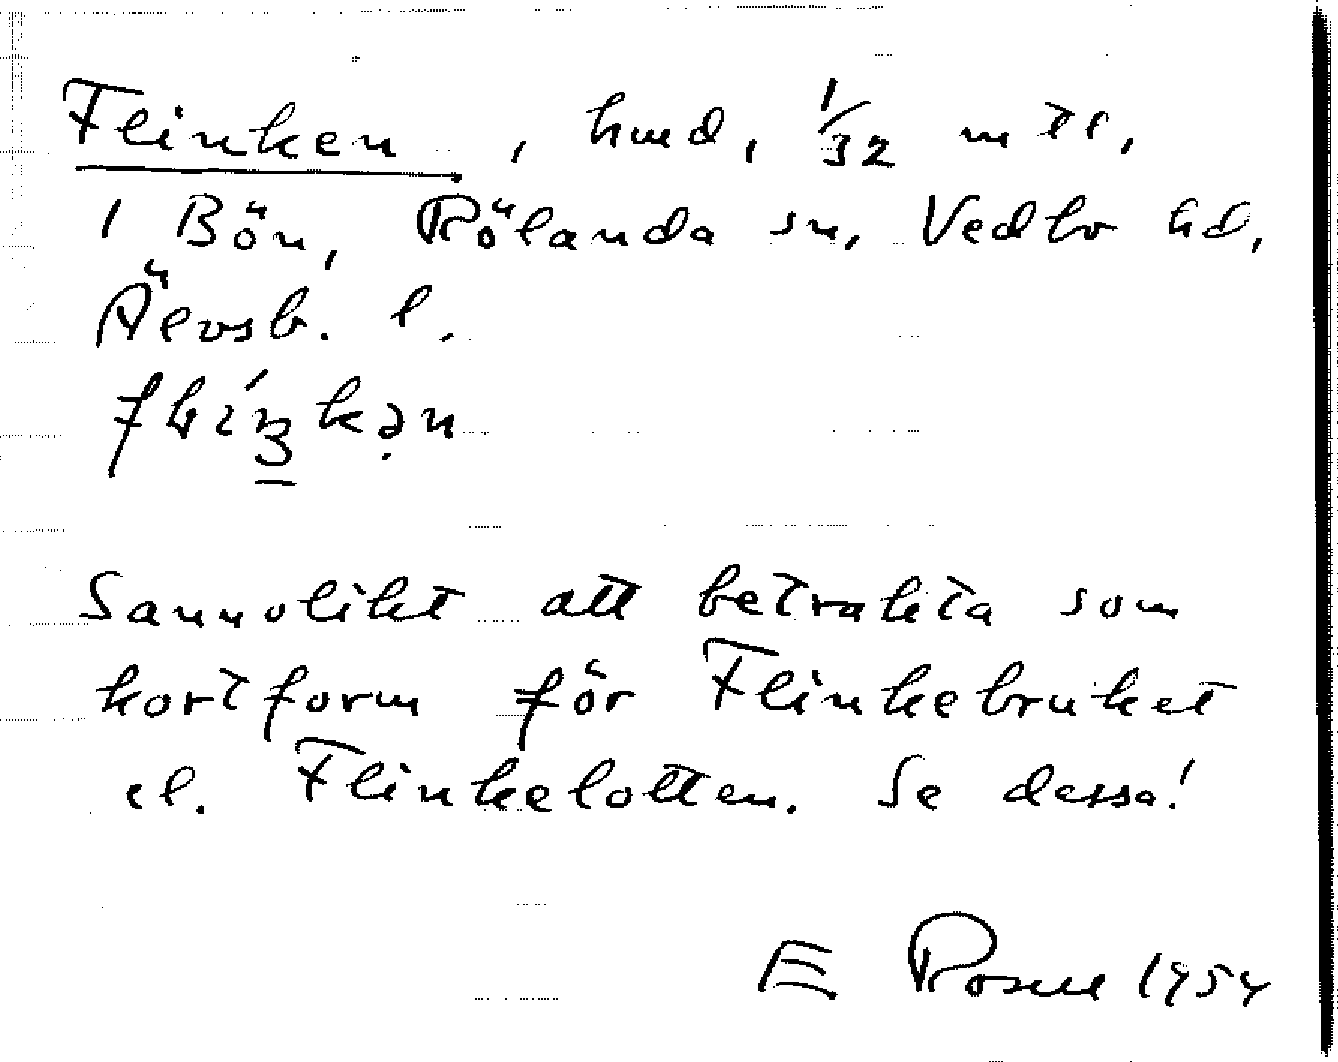 Flinken, hmd, 1/32 mtl,
1 Bön, Rölanda sn, Vedbo hd,
Älvsb. l.
Sannolikt att betrakta som
kortform för Flinkebruket
el. Flinkelotten. Se dessa!
E Rosell 1954